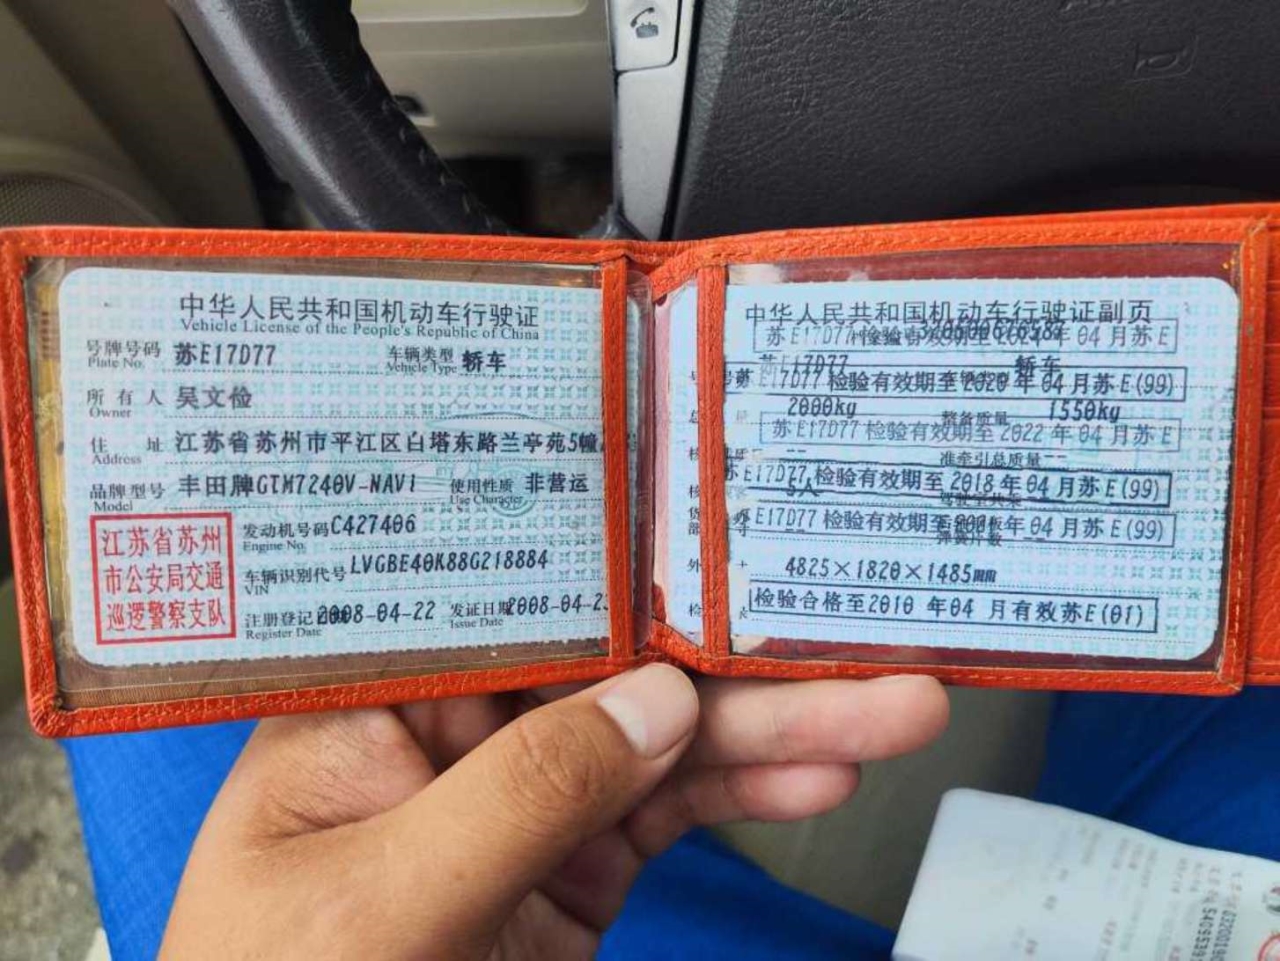 中华人民共和国机动车行驶证
Vehicle License of the People's Republic of China
号牌号码 苏E17D77 车辆类型 轿车
Plate No. Vehicle Type
所有人 吴文俭
Owner
住址 江苏省苏州市平江区白塔东路兰亭苑5幢
Address
品牌型号 丰田牌GTM7240V-NAVi 使用性质 非营运
Model Use Character
江苏省苏州
市公安局交通
巡逻警察支队
发动机号码 C427406
Engine No.
车辆识别代号 LVGBE40K88G218884
VIN
注册登记 2008-04-22 发证日期 2008-04-23
Register Date Issue Date
中华人民共和国机动车行驶证副页
苏E17D77 检验有效期至2024年04月苏E
苏E17D77 轿车
E17D77 检验有效期至2020年04月苏E(99)
2000kg 整备质量 1550kg
苏E17D77 检验有效期至2022年04月苏E
准牵引总质量 --
苏E17D77 检验有效期至2018年04月苏E(99)
5人
苏E17D77 检验有效期至 年04月苏E(99)
外 4825×1820×1485mm
检 检验合格至2010年04月有效苏E(01)